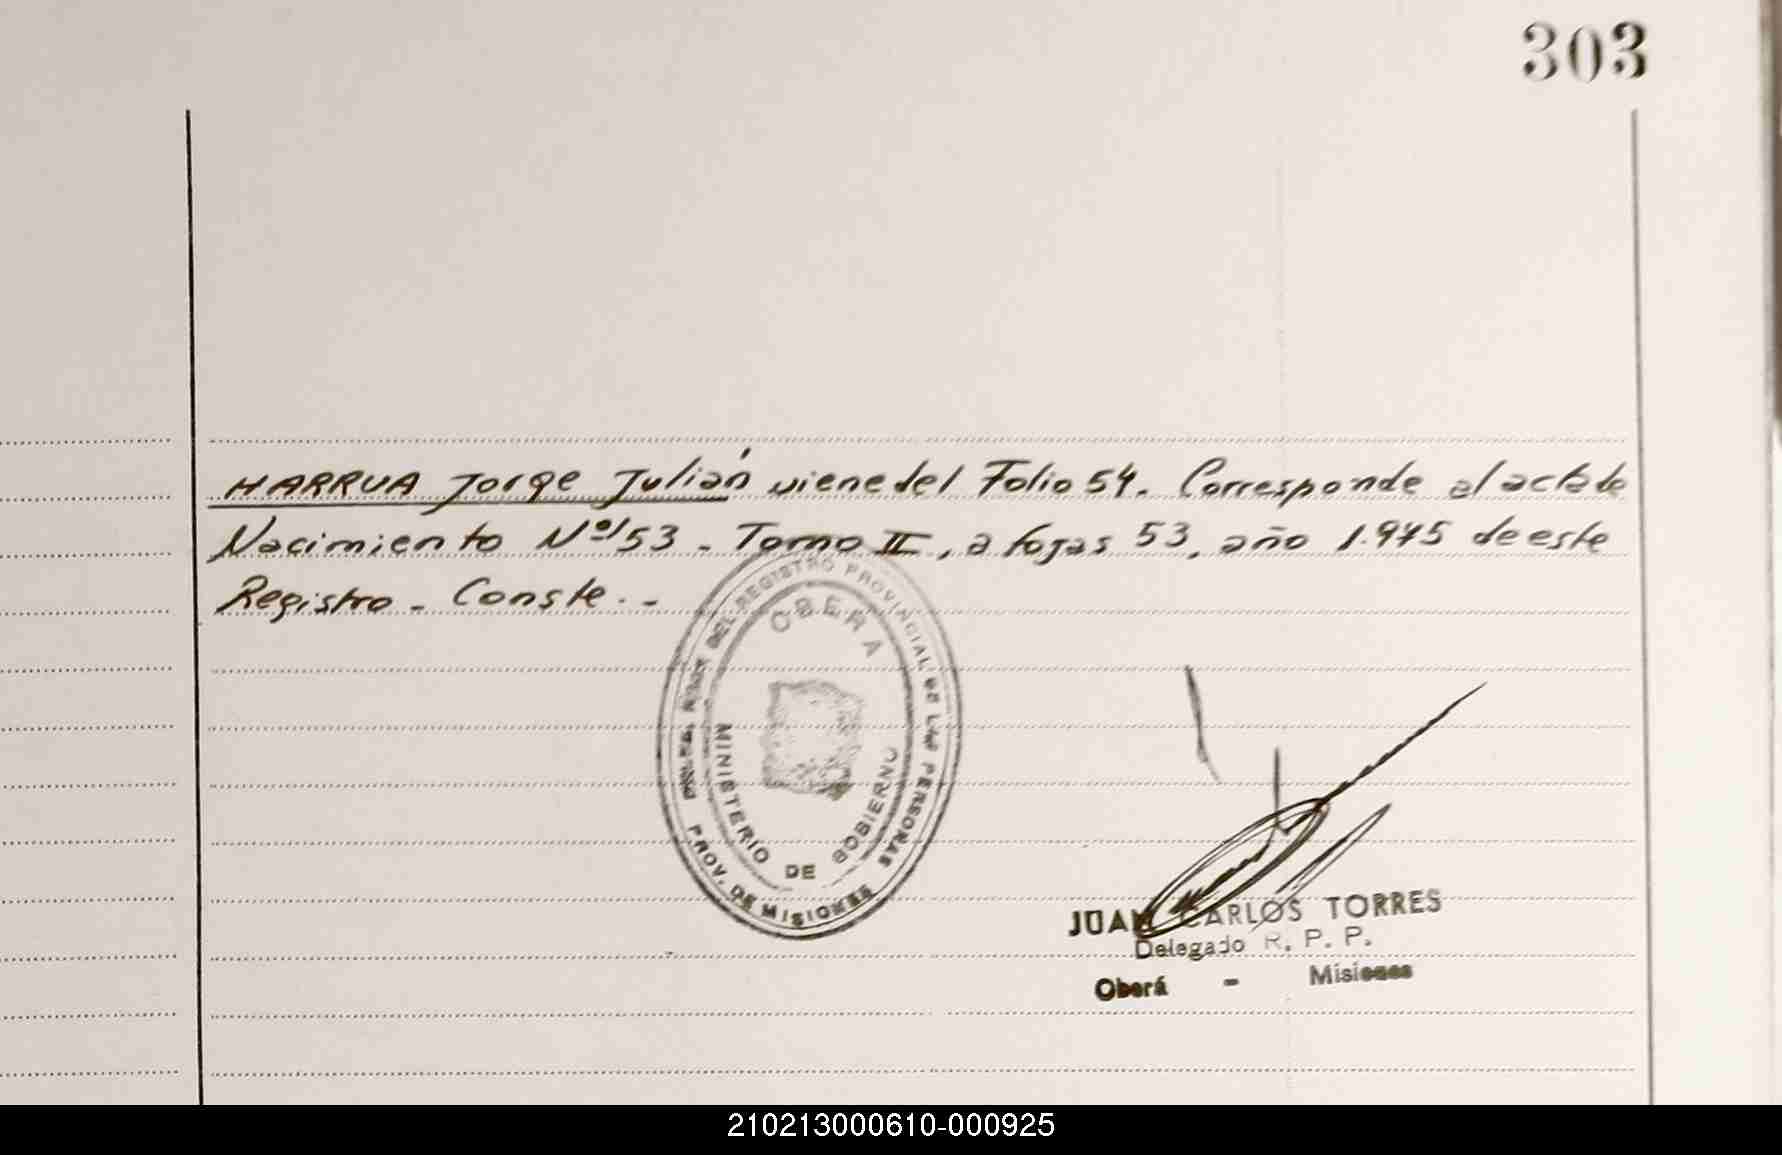 303
HARRUA Jorge Julián viene del Folio 54. Corresponde al acta de
Nacimiento Nº 153 - Tomo II, a fojas 53, año 1.975 de este
Registro - Conste. -
REGISTRO PROVINCIAL DE LAS PERSONAS
PROV. DE MISIONES
OBERA
MINISTERIO DE GOBIERNO
JUAN CARLOS TORRES
Delegado R. P. P.
Oberá - Misiones
210213000610-000925